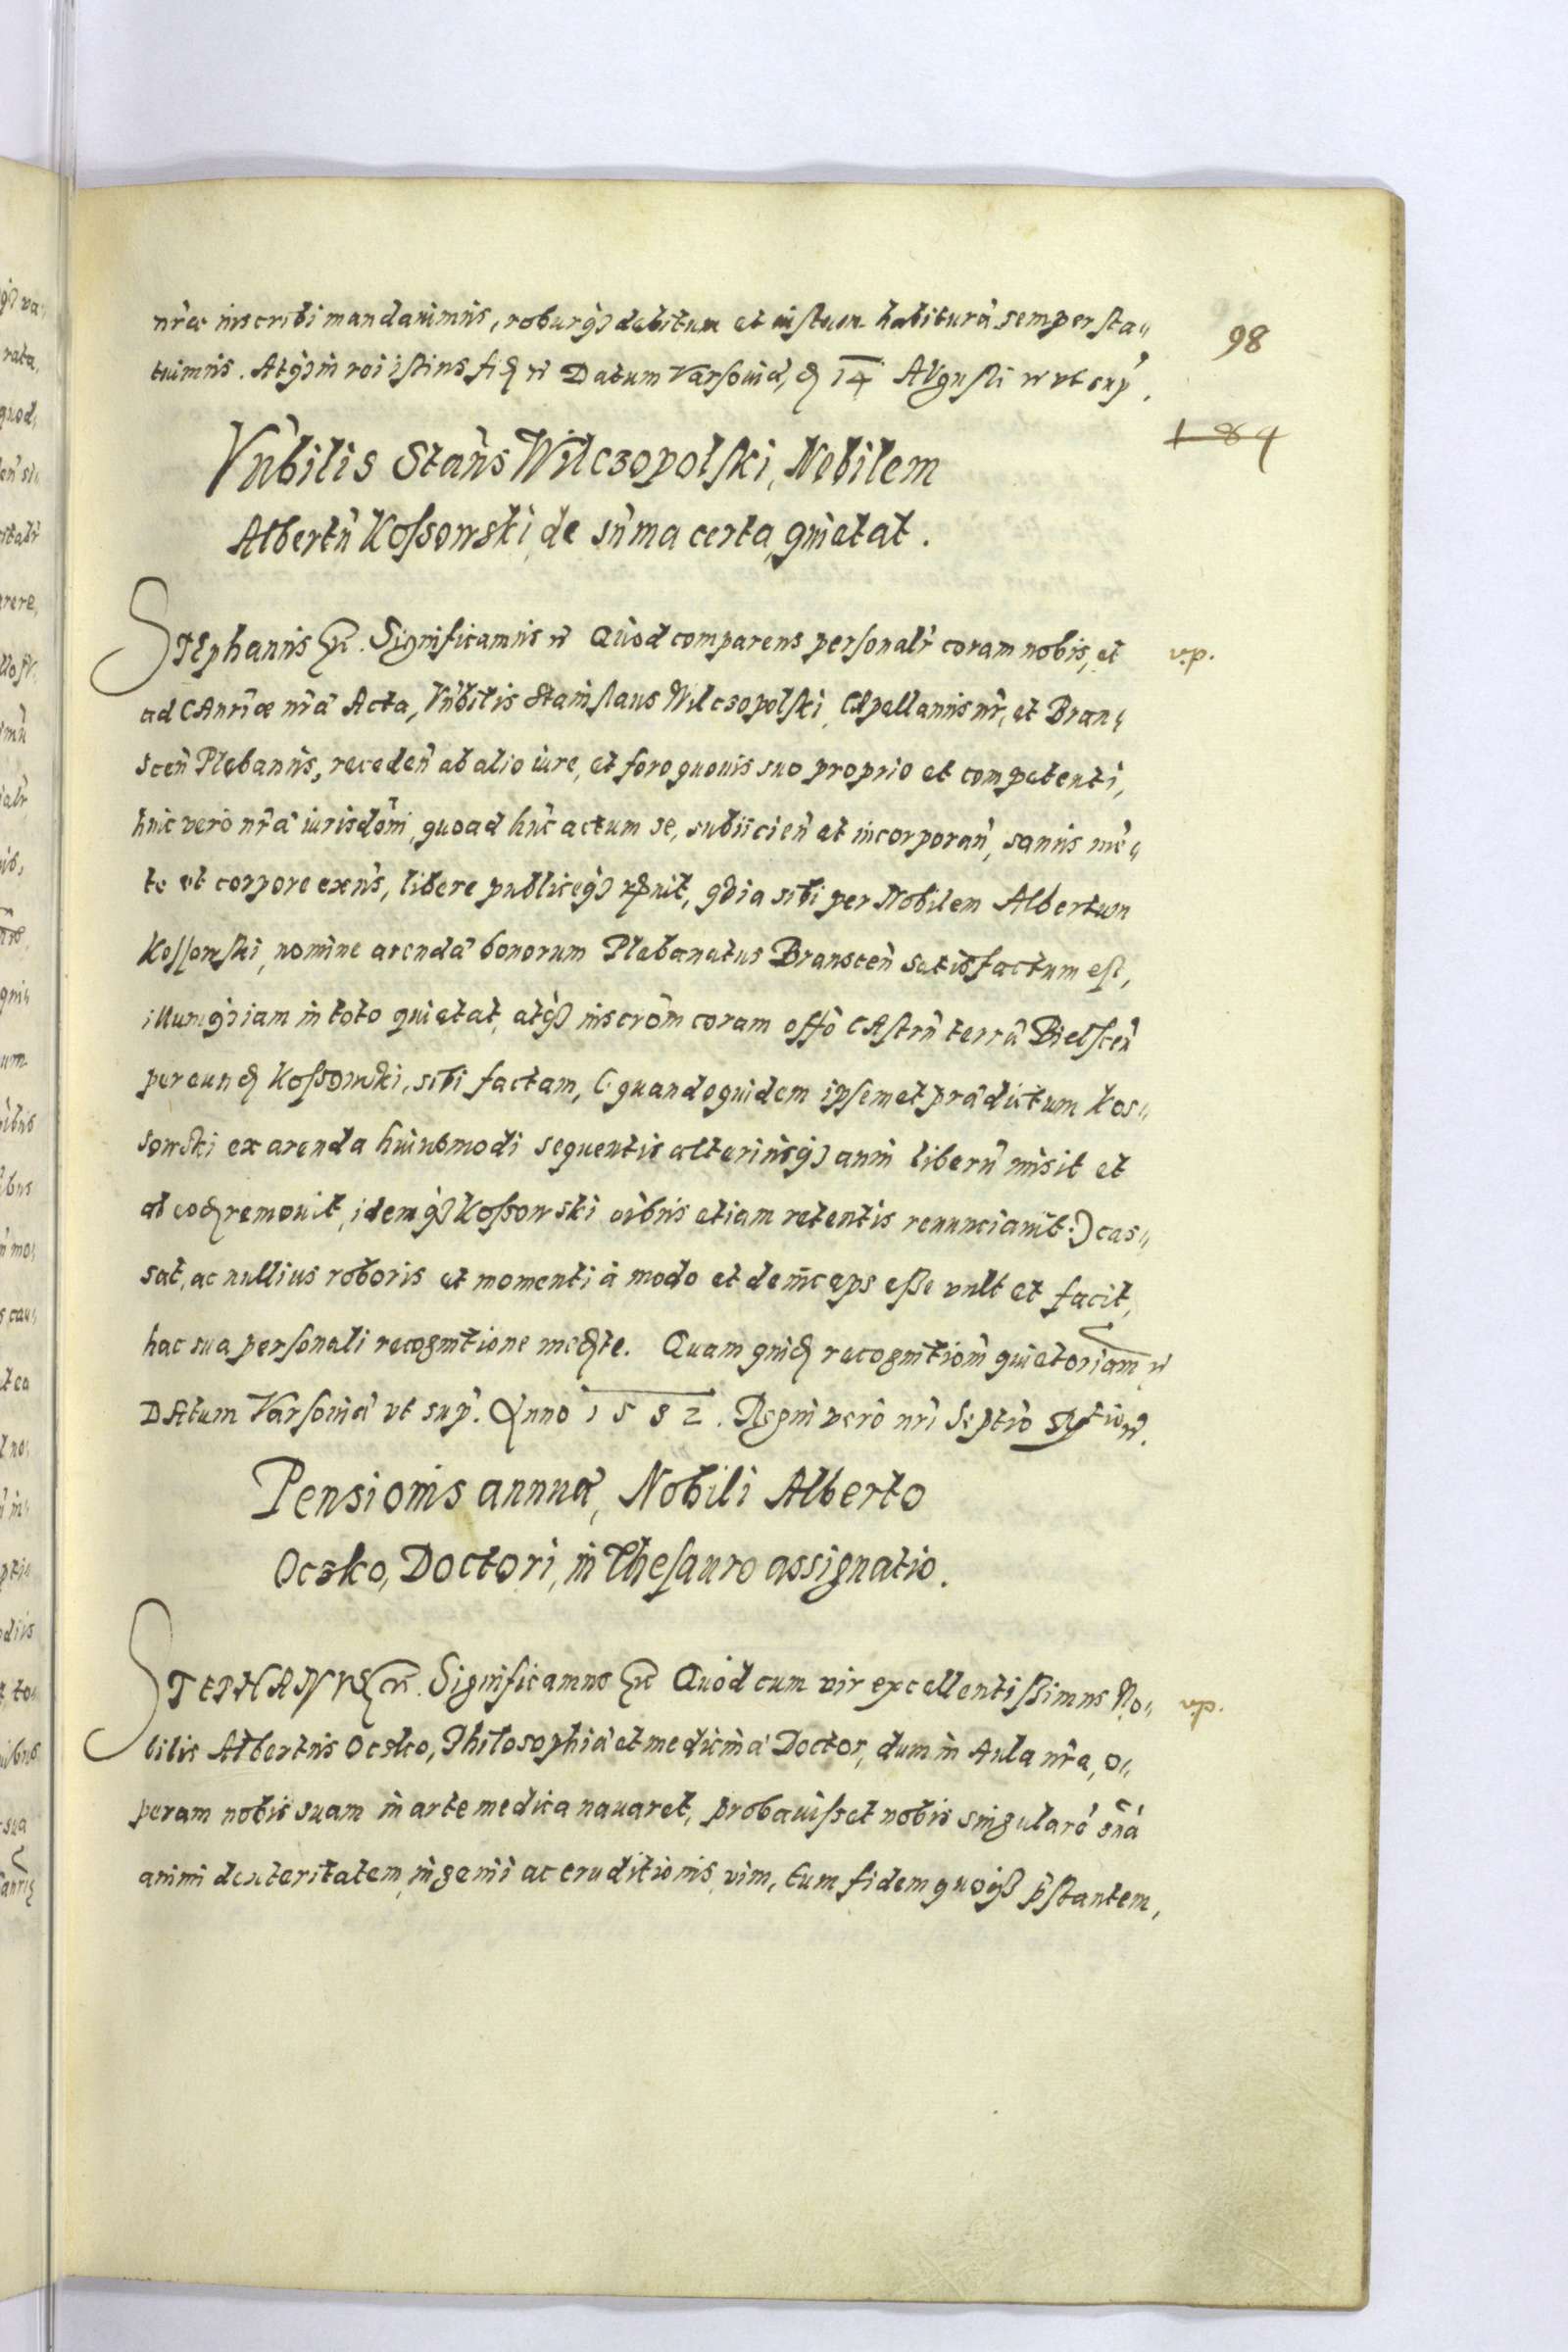 98
184
nr̃æ inscribi mandauimus, roburq́ꝫ debitum et iustum habiturã semper sta„
tuimus. Atq́ꝫ in rei istius fiđ ꝛc̃ Datum Varsouiæ, đ 14 Augusti ꝛc̃ vt sup̃.
Vñbilis Stañs Wilczopolski, Nobilem
Albertũ Kossowski, de sũma certa, quietat.
STEphanus ꝛc̃. Significamus ꝛc̃ Quod comparens personalr̃ coram nobis, et
v.p.
ad CAnriæ nr̃æ Acta, Vñbilis Stanislaus Wilczopolski, CApellanus nr̃, et Bran„
sceñ Plebanus, recedeñ ab alio iure, et foro quouis suo proprio et competenti,
huic verò nr̃æ iurisdõni, quoad hũc actum se, subiicieñ et incorporañ, sanus mẽ„
te et corpore exñs, libere publiceq́ꝫ rđuit, quia sibi per Nobilem Albertum
Kossowski, nomine arendæ bonorum Plebanatus Bransceñ satisfactum est,
illumq́ꝫ iam in toto quietat, atq́ꝫ inscrõm coram offõ CAstrñ terræ Bielsceñ
per eunđ Kossowski, sibi factam, (: quandoquidem ipsemet prædictum Kos„
sowski ex arenda huiusmodi sequentis alteriusq́ꝫ anni liberũ misit et
ab eođ remouit, idemq́ꝫ Kossowski oĩbus etiam retentis renunciauit :) cas„
sat, ac nullius roboris et momenti à modo et deinceps esse vult et facit,
hac sua personali recognitione međte. Quam quiđ recognitiom̃ quietoriam ꝛc̃
DAtum Varsouiæ vt sup̃. Anno 1582. Regni verò nr̃i Septĩo ꝛc̃.
Pensionis annuæ, Nobili Alberto
Oczko, Doctori, in Thesauro assignatio.
STEPHANVS ꝛc̃. Significamus ꝛc̃ Quod cum vir excellentissimus No„
v.p.
bilis Albertus Oczko, Philosophiæ et medicinæ Doctor, dum in Aula nr̃a, o„
peram nobis suam in arte medica nauaret, probauisset nobis singularẽ suã
animi dexteritatem, ingenii ac eruditionis vim, tum fidem quoq́ꝫ p̃stantem,